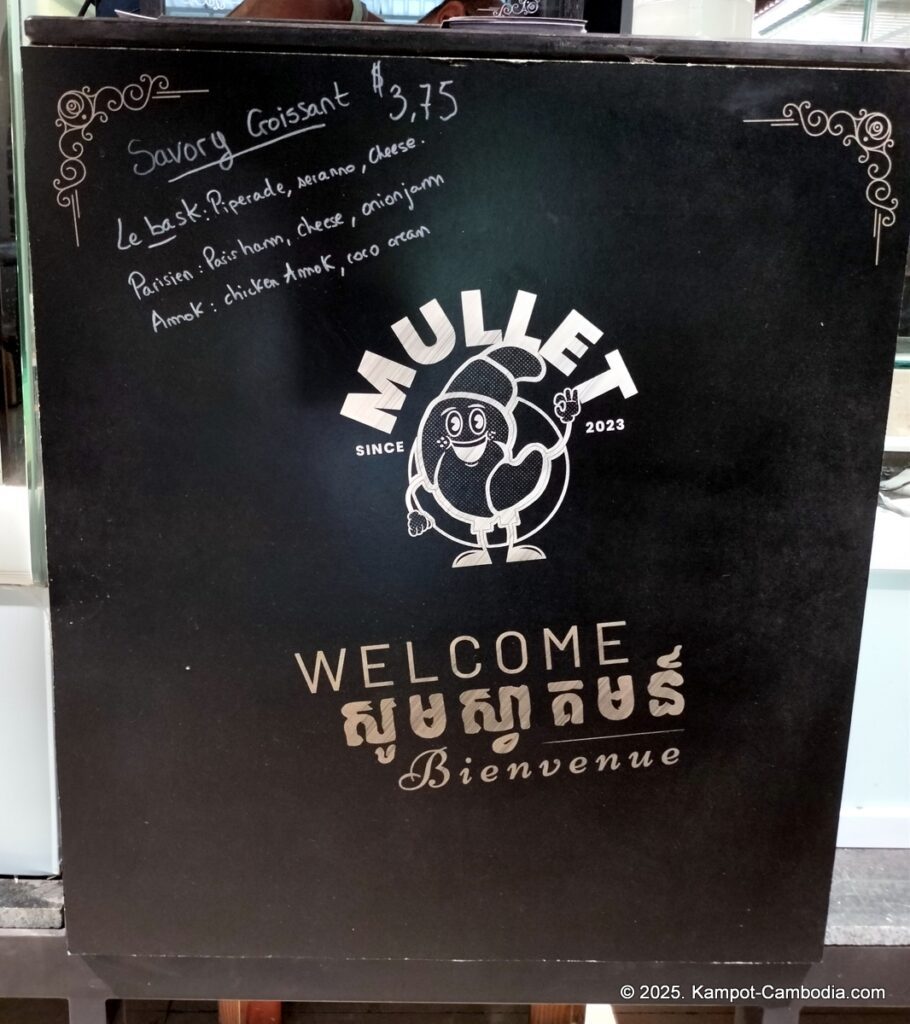 Savory Croissant $3,75
Le bask: Piperade, seranno, cheese.
Parisien: Paris ham, cheese, onionjam
Amok: chicken Amok, coco cream
MULLET
SINCE 2023
WELCOME
សូមស្វាគមន៍
Bienvenue
© 2025. Kampot-Cambodia.com